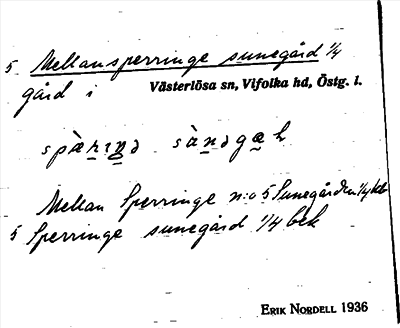 5 Mellansperringe sunegård 1/4
gård i Västerlösa sn, Vifolka hd, Östg. l.
spærıŋə sànəgæ h
Mellan Sperringe n:o 5 Sunegården 1/4 bek
5 Sperringe sunegård 1/4 bek
ERIK NORDELL 1936